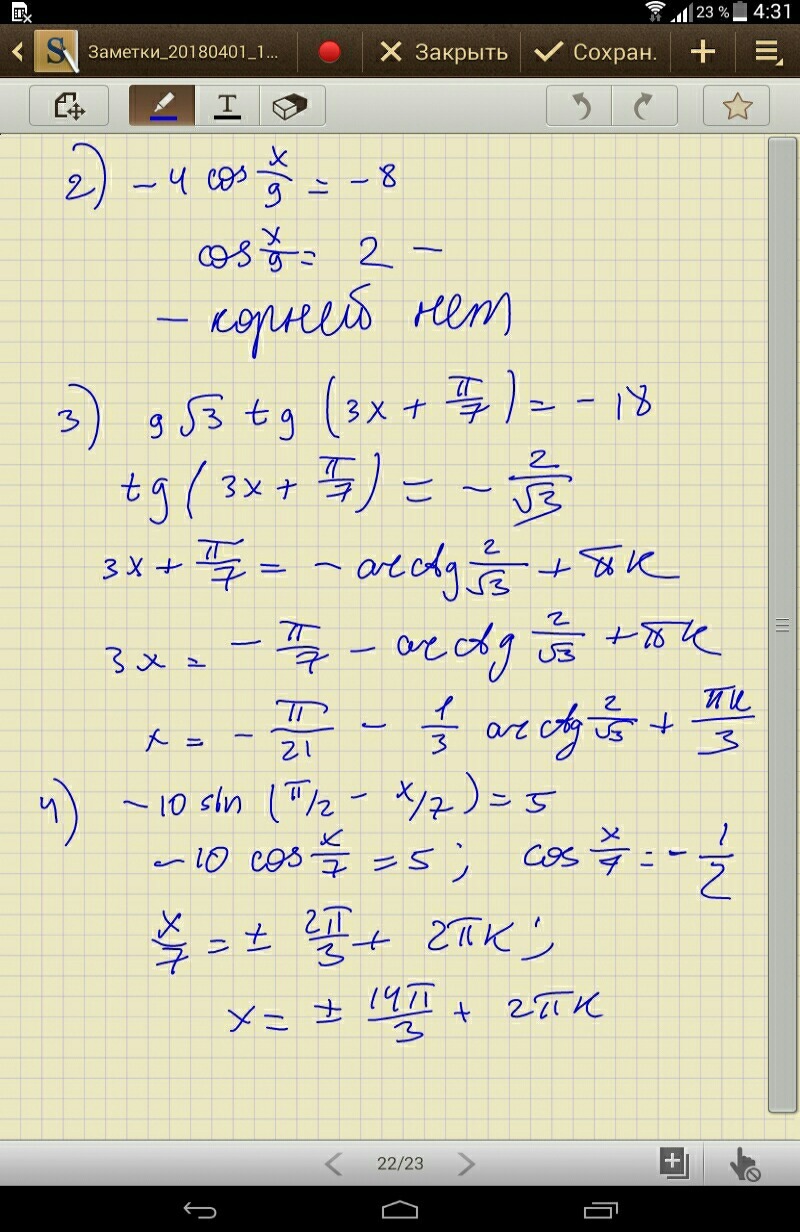 23 % 4:31
Заметки_20180401_1... Закрыть Сохран.
T
2) -4 cos x/9 = -8
cos x/9 = 2 -
- корней нет
3) 9√3 tg (3x + π/7) = -18
tg (3x + π/7) = - 2/√3
3x + π/7 = - arctg 2/√3 + πk
3x = - π/7 - arctg 2/√3 + πk
x = - π/21 - 1/3 arctg 2/√3 + πk/3
4) -10 sin (π/2 - x/7) = 5
-10 cos x/7 = 5; cos x/7 = - 1/2
x/7 = ± 2π/3 + 2πk;
x = ± 14π/3 + 2πk
22/23